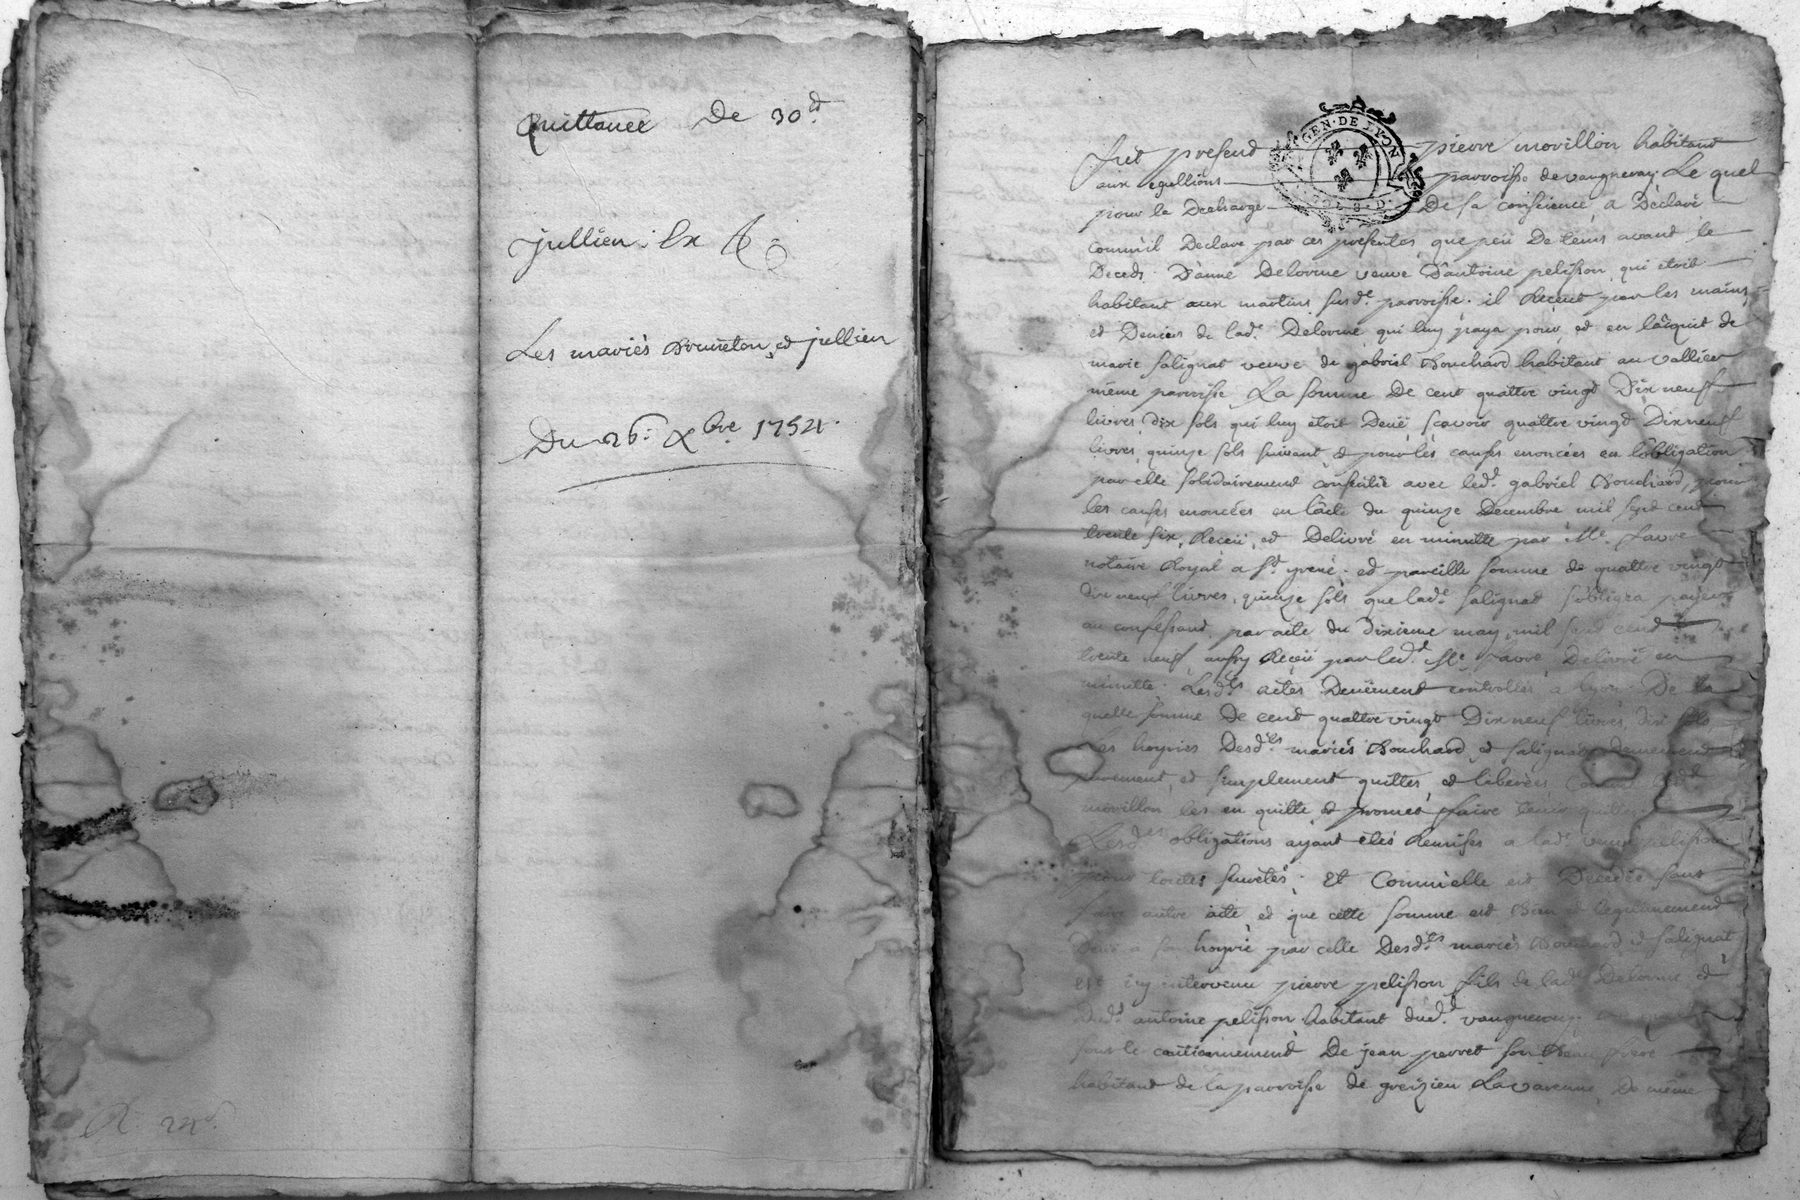 Quittance De 30ᵈ.
jullien. Ex
Les mariés Bruneton et jullien
Du 26: Xbre. 1754.
GEN. DE LYON
Fut present pierre movillon habitant
aux eguillions parroisse de vaugneray. Le quel
pour la Decharge De sa consience a Declaré
comm'il Declare par ces presentes que peu De tems avant le
Deceds. D'anne Delorme veuve D'antoine pelisson, qui etoit
habitant aux martins susde. parroisse. il Receut par les mains
et Deniers de lade. Delorme qui luy paya pour, et en l'acquit de
marie salignat veuve de gabriel Bouchard habitant au vallier
même parroisse, La somme De cent quattre vingt Dix neuf
livres, dix sols qui luy étoit Deüe, scavoir quattre vingt Dix neuf
livres, quinze sols suivant, et pour les causes enoncées en l'obligation
par elle solidairement consentie avec led. gabriel Bouchard, pour
les causes enoncées en l'acte du quinze Decembre mil sept cent
trente six, Receu, et Delivré en minutte par Me. favre
notaire Royal a St. yrené. et pareille somme de quattre vingt
dix neuf livres, quinze sols que lade. salignat s'obligea payer
au confessant, par acte du dixieme may mil sept cent
trente neuf, aussy Receu par led. Me. favre Delivré en
minutte. Lesdts actes Deuëment controllés a lyon. De la
quelle somme de cent quattre vingt Dix neuf livres, dix sols
Les hoyries Desdts. mariés Bouchard, et salignat demeurent
purement, et simplement quittes, et liberées, comme led.
movillon les en quitte, et promet faire tenir quittes
Lesdtes obligations ayant étés Remises a lad. veuve pelisson
pour toutes suretés. Et comm'elle est Decedée sans
faire autre acte et que cette somme est Bien et legitimement
Deüe a son hoyrie par celle Desdts. mariés Bouchard et salignat
est icy intervenu pierre pelisson fils de lade. Delorme et
dud. antoine pelisson habitant dud. vaugneray
sous le cautionnement De jean perret son Beau frere
habitant de la parroisse de greizieu Lavarenne, De même